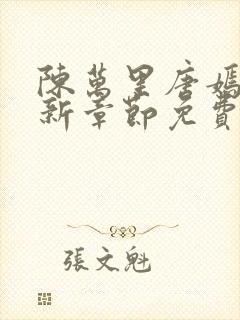 陳萬里唐嫣
新章節免費
張文魁